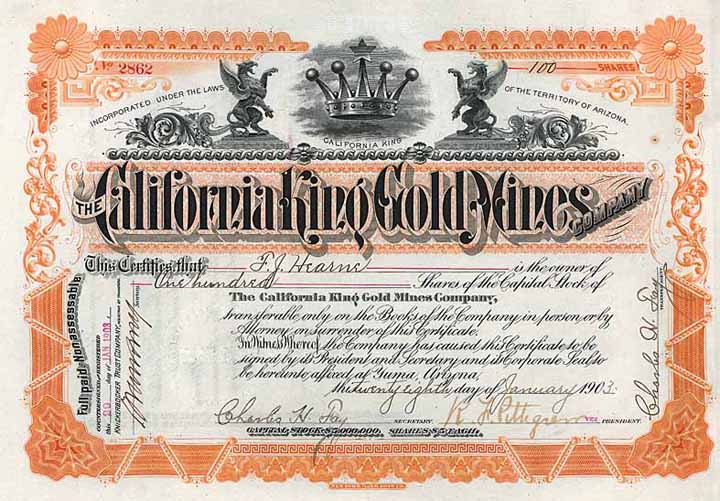 No 2862
100 SHARES
INCORPORATED UNDER THE LAWS OF THE TERRITORY OF ARIZONA.
CALIFORNIA KING
THE California King Gold Mines COMPANY
This Certifies that F. J. Hearne is the owner of
One hundred Shares of the Capital Stock of
The California King Gold Mines Company,
transferable only on the Books of the Company in person or by
Attorney on surrender of this Certificate.
In Witness Whereof the Company has caused this Certificate to be
signed by its President and Secretary and its Corporate Seal to
be hereunto affixed at Yuma, Arizona,
this twenty eighth day of January 1903.
Charles H. Fay SECRETARY
VICE PRESIDENT.
CAPITAL STOCK $7,000,000. SHARES $5 EACH.
Full paid Non assessable
COUNTERSIGNED AND REGISTERED
this day of JAN 1903
KNICKERBOCKER TRUST COMPANY,
Charles H. Fay